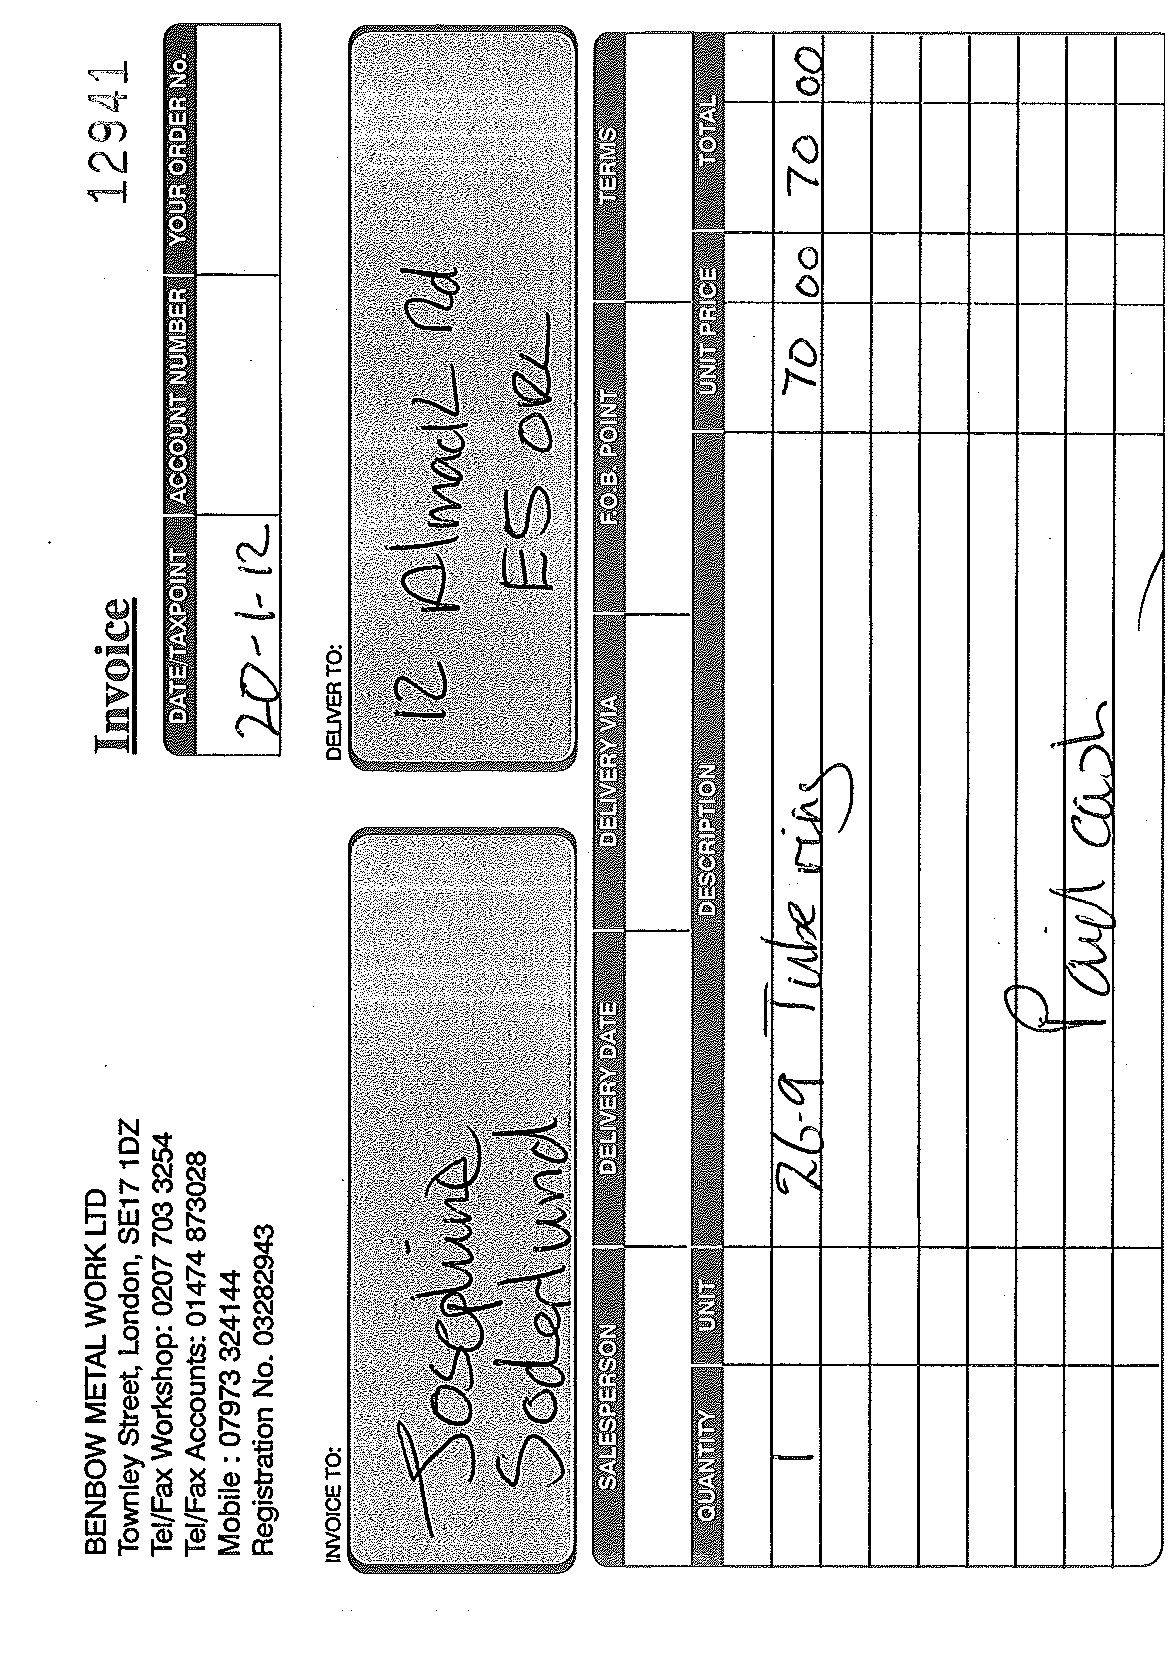 BENBOW METAL WORK LTD
Townley Street, London, SE17 1DZ
Tel/Fax Workshop: 0207 703 3254
Tel/Fax Accounts: 01474 873028
Mobile : 07973 324144
Registration No. 03282943
Invoice
12941
DATE/TAXPOINT ACCOUNT NUMBER YOUR ORDER NO.
20-1-12
INVOICE TO:
Josephine
Soderlund
DELIVER TO:
12 Almack Rd
E5 0RL
SALESPERSON DELIVERY DATE DELIVERY VIA F.O.B. POINT TERMS
QUANTITY UNIT DESCRIPTION UNIT PRICE TOTAL
1 26-9 Tube ring 70 00 70 00
Paid cash